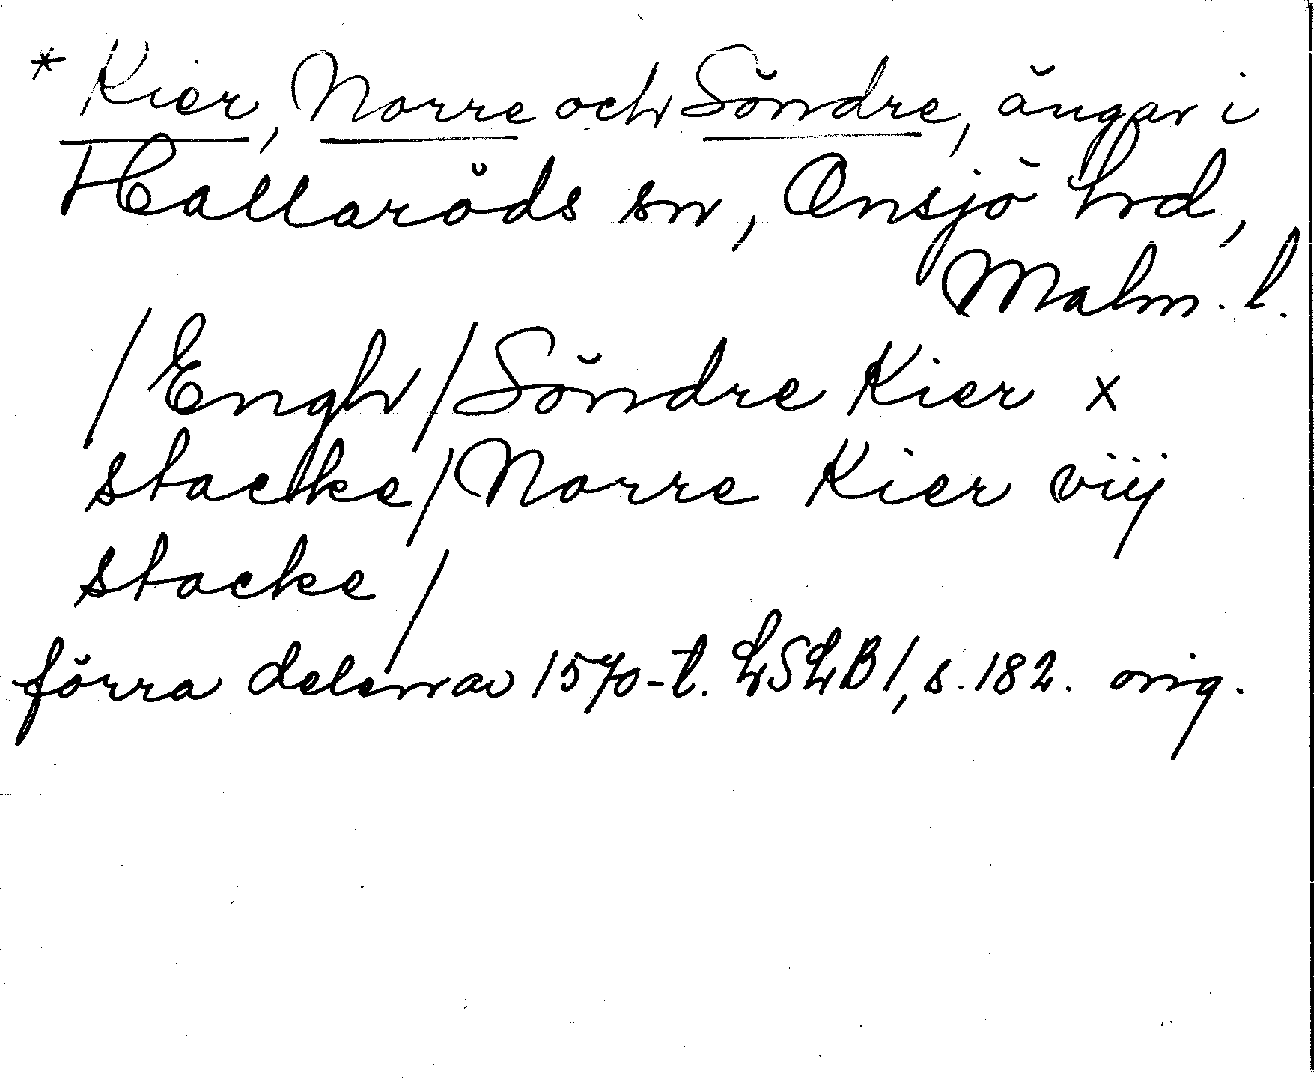 * Kier, Norre och Söndre, ängar i
Hallaröds sn, Onsjö hrd,
Malm. l.
/Engh/Söndre Kier x
stacke/Norre Kier viij
stacke/
förra delen av 1570-t. LSLB1, s. 182. orig.